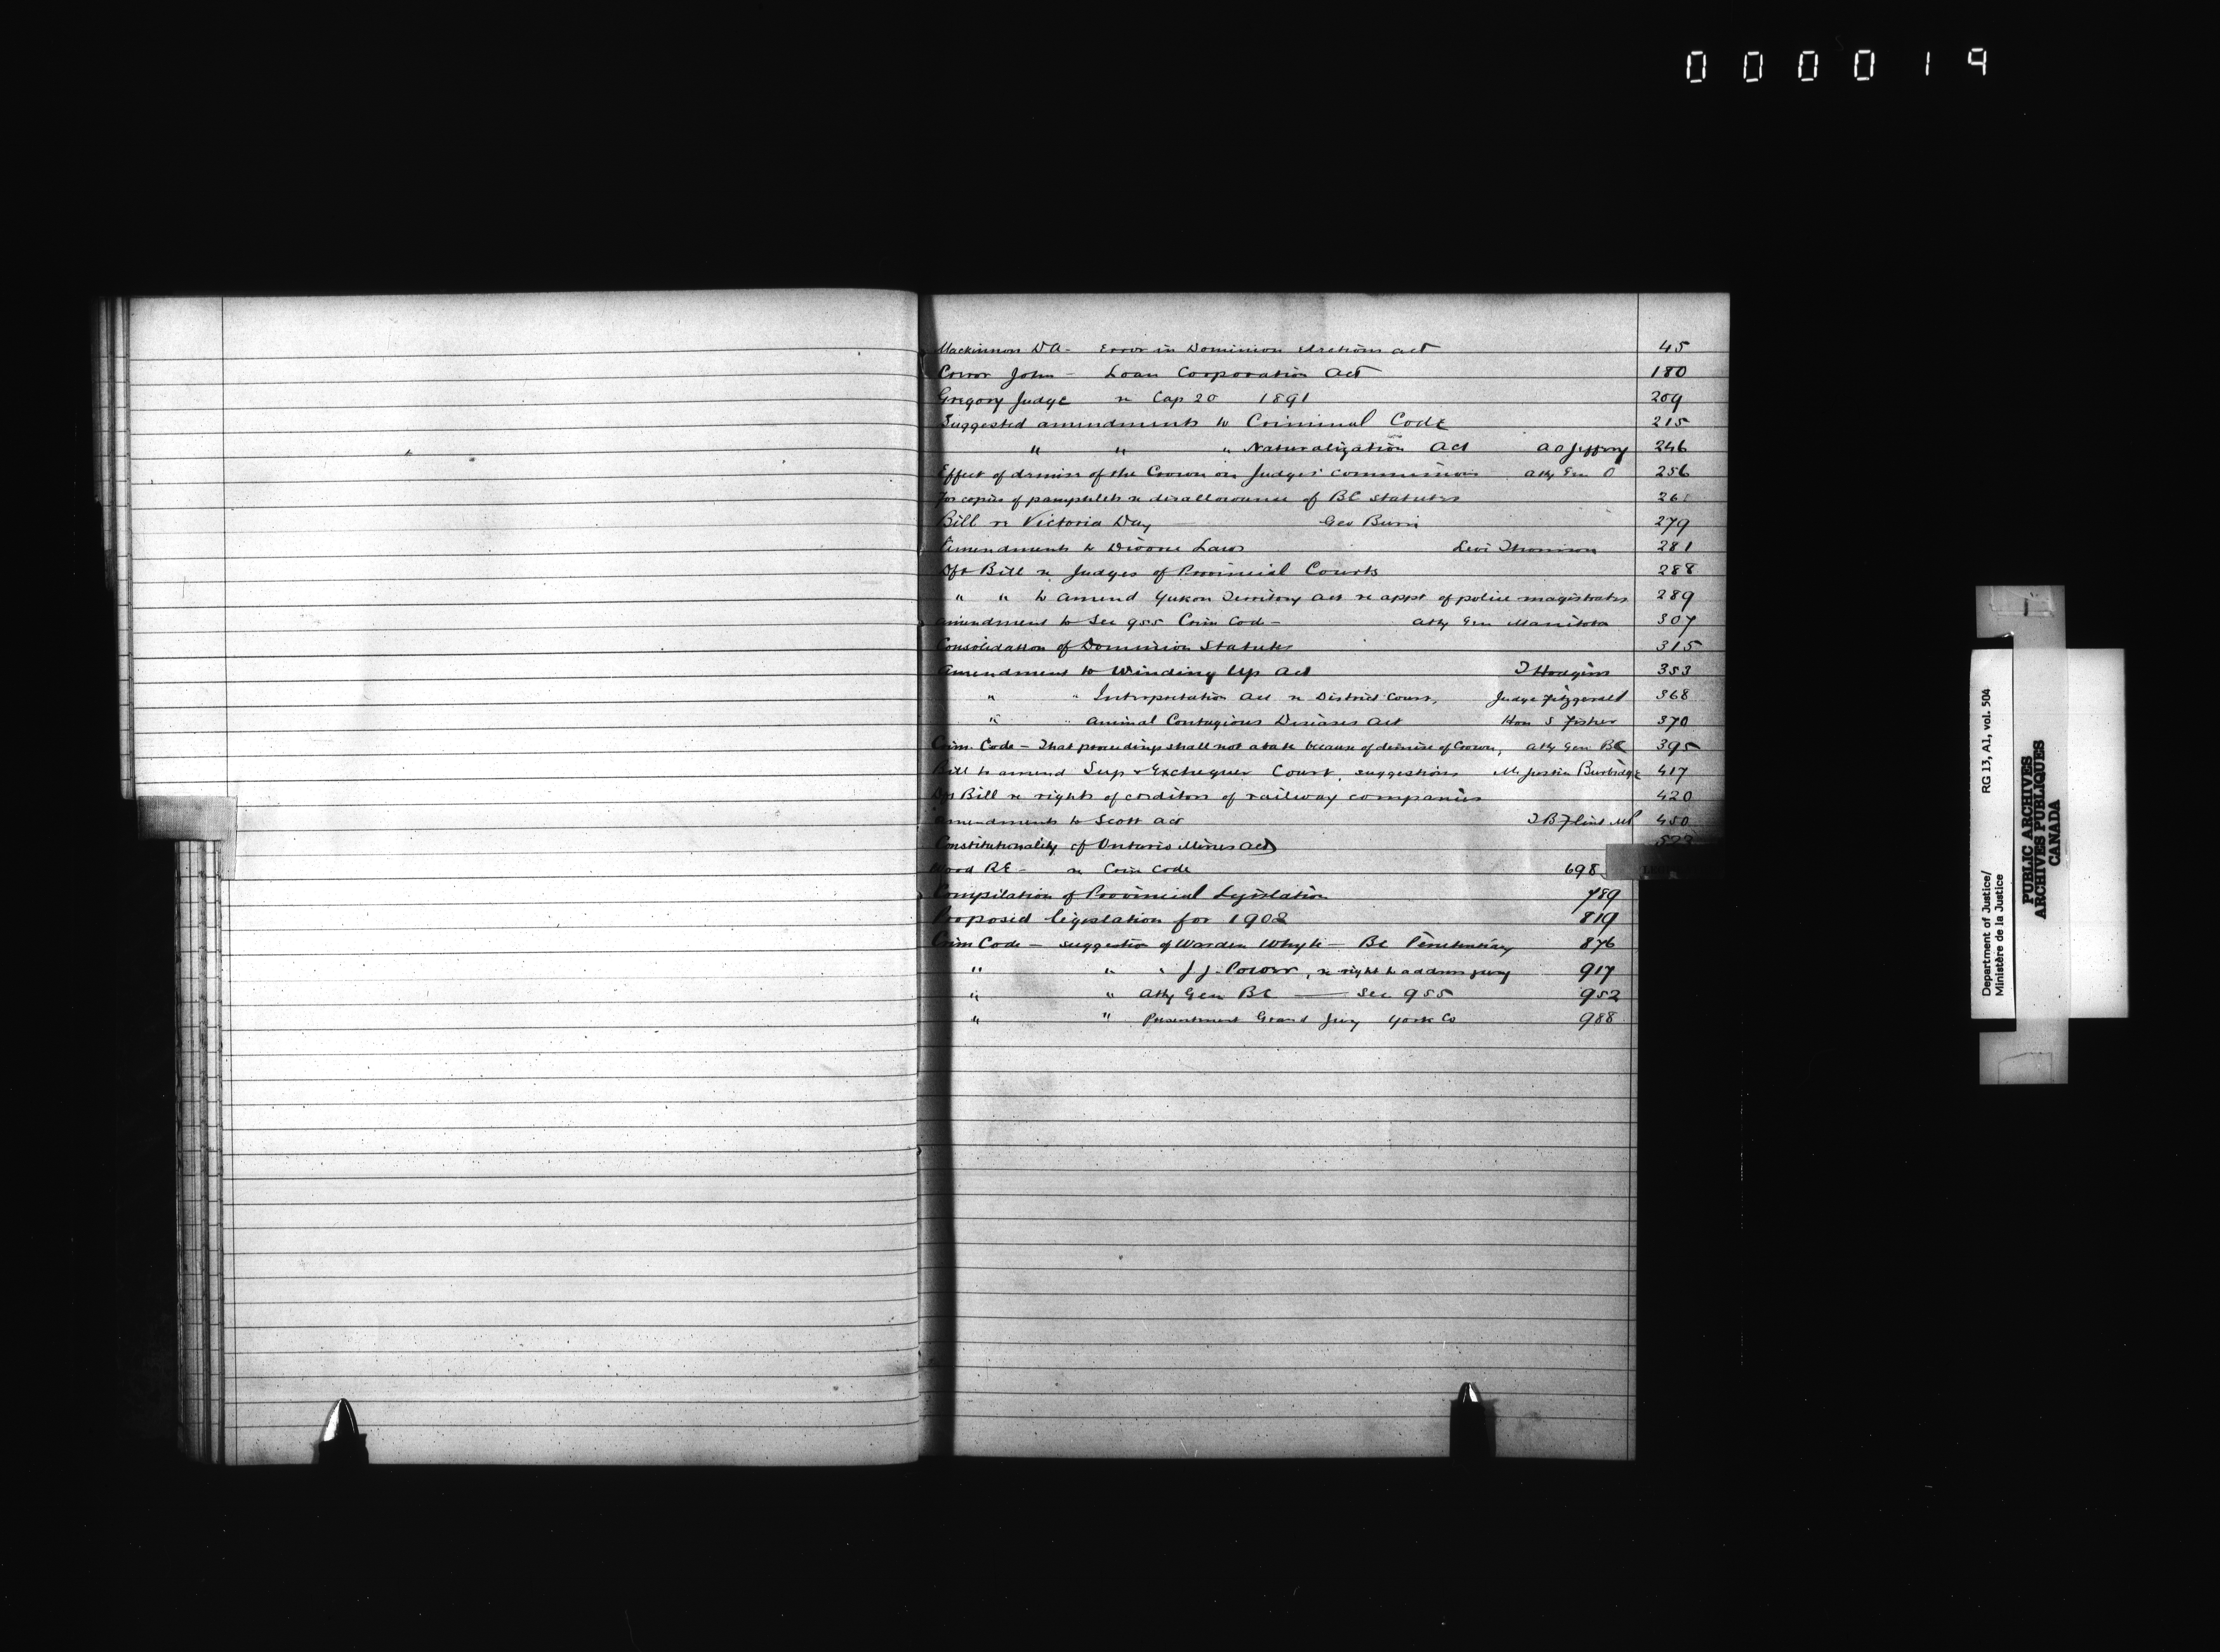 000019
Mackinnon DA - Error in Dominion Elections Act 45
John - Loan Corporation Act 180
Gregory Judge re Cap 20 1891 209
Suggested amendments to Criminal Code 215
" " " Naturalization Act A O Jeffery 246
Effect of demise of the Crown on Judges' commissions Atty Gen O 256
For copies of pamphlets re disallowance of BC Statutes 26
Bill re Victoria Day Geo 279
Amendments to Divorce Laws Levi Thomson 281
Dft Bill re Judges of Provincial Courts 288
" " to amend Yukon Territory Act re appt of police magistrates 289
Amendment to Sec 955 Crim Code - Atty Gen Manitoba 307
Consolidation of Dominion Statutes 315
Amendment to Winding Up Act T Hodgins 353
" " Interpretation Act re District Court, Judge Fitzgerald 368
" " Animal Contagious Diseases Act Hon S Fisher 370
Crim. Code - That proceedings shall not abate because of demise of Crown, Atty Gen BC 395
Bill to amend Sup & Exchequer Court, suggestions Mr Justice Burbidge 417
Dft Bill re rights of creditors of railway companies 420
Amendments to Scott Act T B Flint MP 450
Constitutionality of Ontario Mines Act
Wood RE - re Crim Code 698
Compilation of Provincial Legislation 789
Proposed legislation for 1902 819
Crim Code - suggestion of Warden Whyte - BC Penitentiary 876
" " " J J Power, re right to address jury 917
" " Atty Gen BC - Sec 955 952
" " Presentment Grand Jury York Co 988
Department of Justice/ RG 13, A1, vol. 504
Ministère de la Justice
PUBLIC ARCHIVES
ARCHIVES PUBLIQUES
CANADA